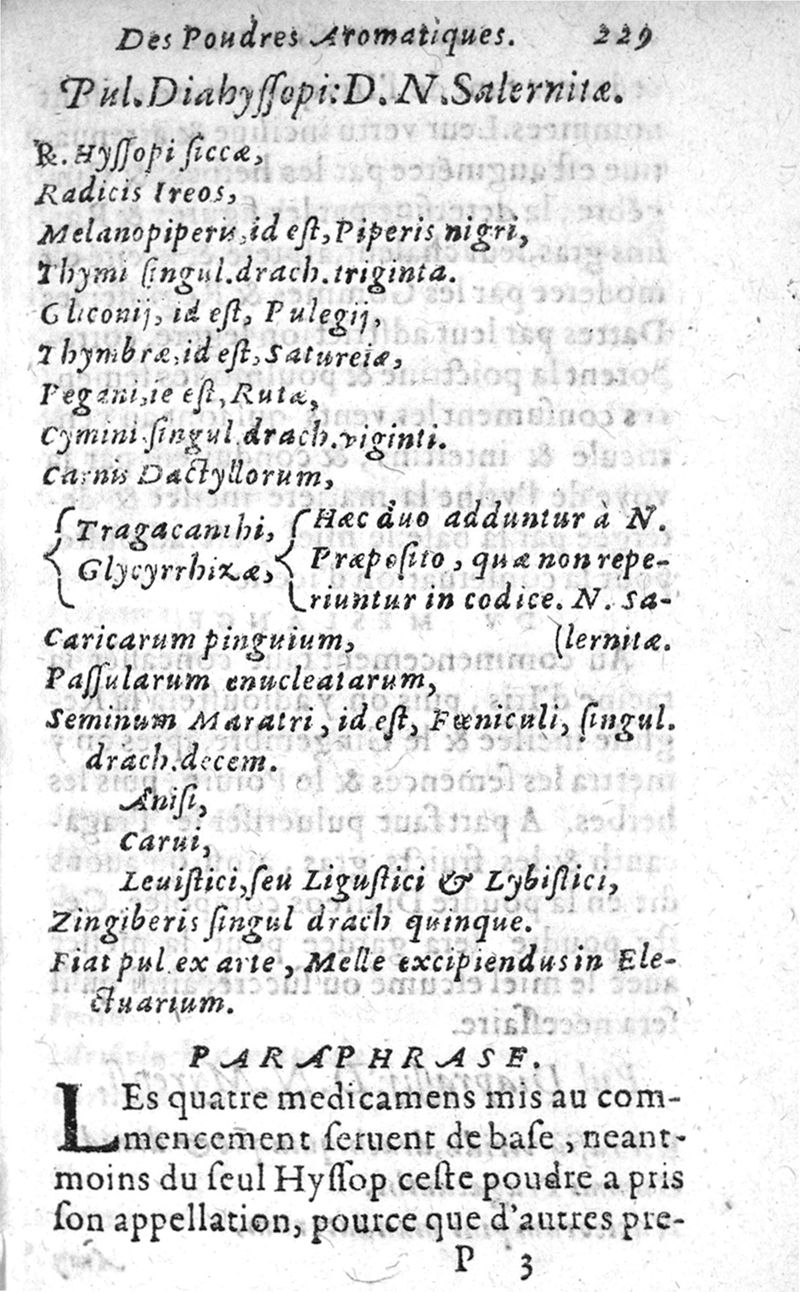 Des Poudres Aromatiques. 229
Pul. Diahyſſopi: D. N. Salernitæ.
℞. Hyſſopi ſiccæ,
Radicis Ireos,
Melanopiperis, id eſt, Piperis nigri,
Thymi ſingul. drach. triginta.
Gliconij, id eſt, Pulegij,
Thymbræ, id eſt, Satureiæ,
Pegani, ie eſt, Rutæ,
Cymini ſingul. drach. viginti.
Carnis Dactyllorum,
Tragacanthi, Hæc duo adduntur à N.
Glycyrrhizæ, Præpoſito, quæ non repe-
riuntur in codice. N. Sa-
Caricarum pinguium, (lernitæ.
Paſſularum enucleatarum,
Seminum Maratri, id eſt, Fœniculi, ſingul.
drach. decem.
Aniſi,
Carui,
Leuiſtici, ſeu Liguſtici & Lybiſtici,
Zingiberis ſingul drach quinque.
Fiat pul ex arte, Melle excipiendus in Ele-
ctuarium.
PARAPHRASE.
LEs quatre medicamens mis au com-
mencement ſeruent de baſe, neant-
moins du ſeul Hyſſop ceſte poudre a pris
ſon appellation, pource que d'autres pre-
P 3